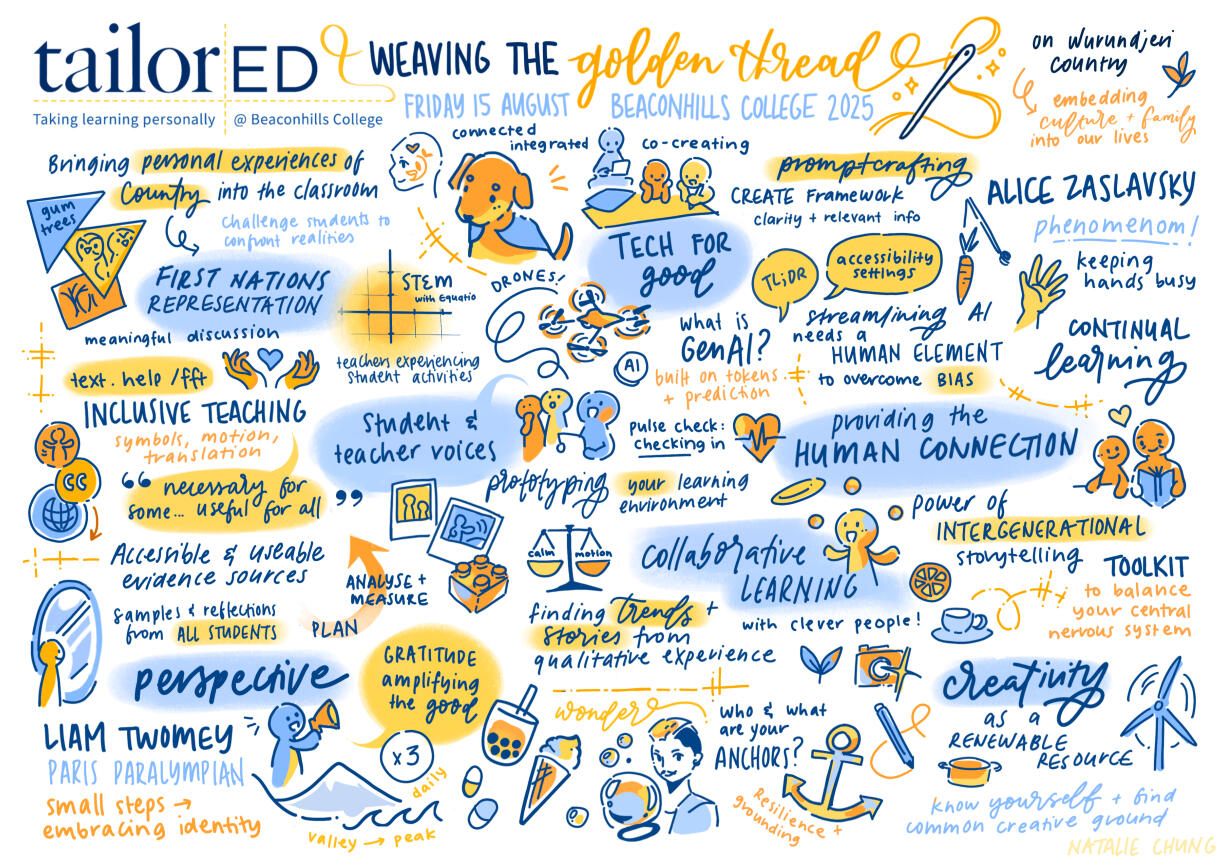 tailorED
Taking learning personally @ Beaconhills College
WEAVING THE golden thread
FRIDAY 15 AUGUST BEACONHILLS COLLEGE 2025
on Wurundjeri
country
embedding
culture + family
into our lives
Bringing personal experiences of
Country into the classroom
challenge students to
confront realities
gum
trees
FIRST NATIONS
REPRESENTATION
meaningful discussion
connected
integrated
co-creating
TECH FOR
good
STEM
with Equatio
teachers experiencing
student activities
DRONES!
promptcrafting
CREATE Framework
clarity + relevant info
TL;DR
accessibility
settings
What is
GenAI?
AI
built on tokens
+ prediction
streamlining AI
needs a
HUMAN ELEMENT
to overcome BIAS
ALICE ZASLAVSKY
phenomenom!
keeping
hands busy
CONTINUAL
learning
text.help/fft
INCLUSIVE TEACHING
symbols, motion,
translation
CC
“ necessary for
some... useful for all ”
Accessible & useable
evidence sources
Samples & reflections
from ALL STUDENTS
Student &
teacher voices
pulse check:
checking in
prototyping your learning
environment
ANALYSE +
MEASURE
PLAN
calm motion
finding trends +
stories from
qualitative experience
providing the
HUMAN CONNECTION
power of
INTERGENERATIONAL
storytelling
collaborative
LEARNING
with clever people!
TOOLKIT
to balance
your central
nervous system
perspective
LIAM TWOMEY
PARIS PARALYMPIAN
small steps →
embracing identity
GRATITUDE
amplifying
the good
x3
daily
valley → peak
wonder
WHO & WHAT
are your
ANCHORS?
Resilience +
grounding
creativity
as a
RENEWABLE
RESOURCE
know yourself + find
common creative ground
NATALIE CHUNG